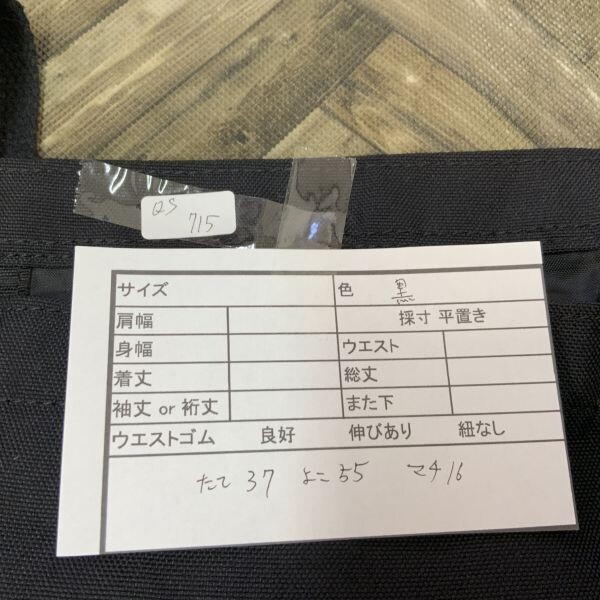 QS
715
サイズ 色 黒
肩幅 採寸 平置き
身幅 ウエスト
着丈 総丈
袖丈 or 裄丈 また下
ウエストゴム 良好 伸びあり 紐なし
たて 37 よこ 55 マチ 16